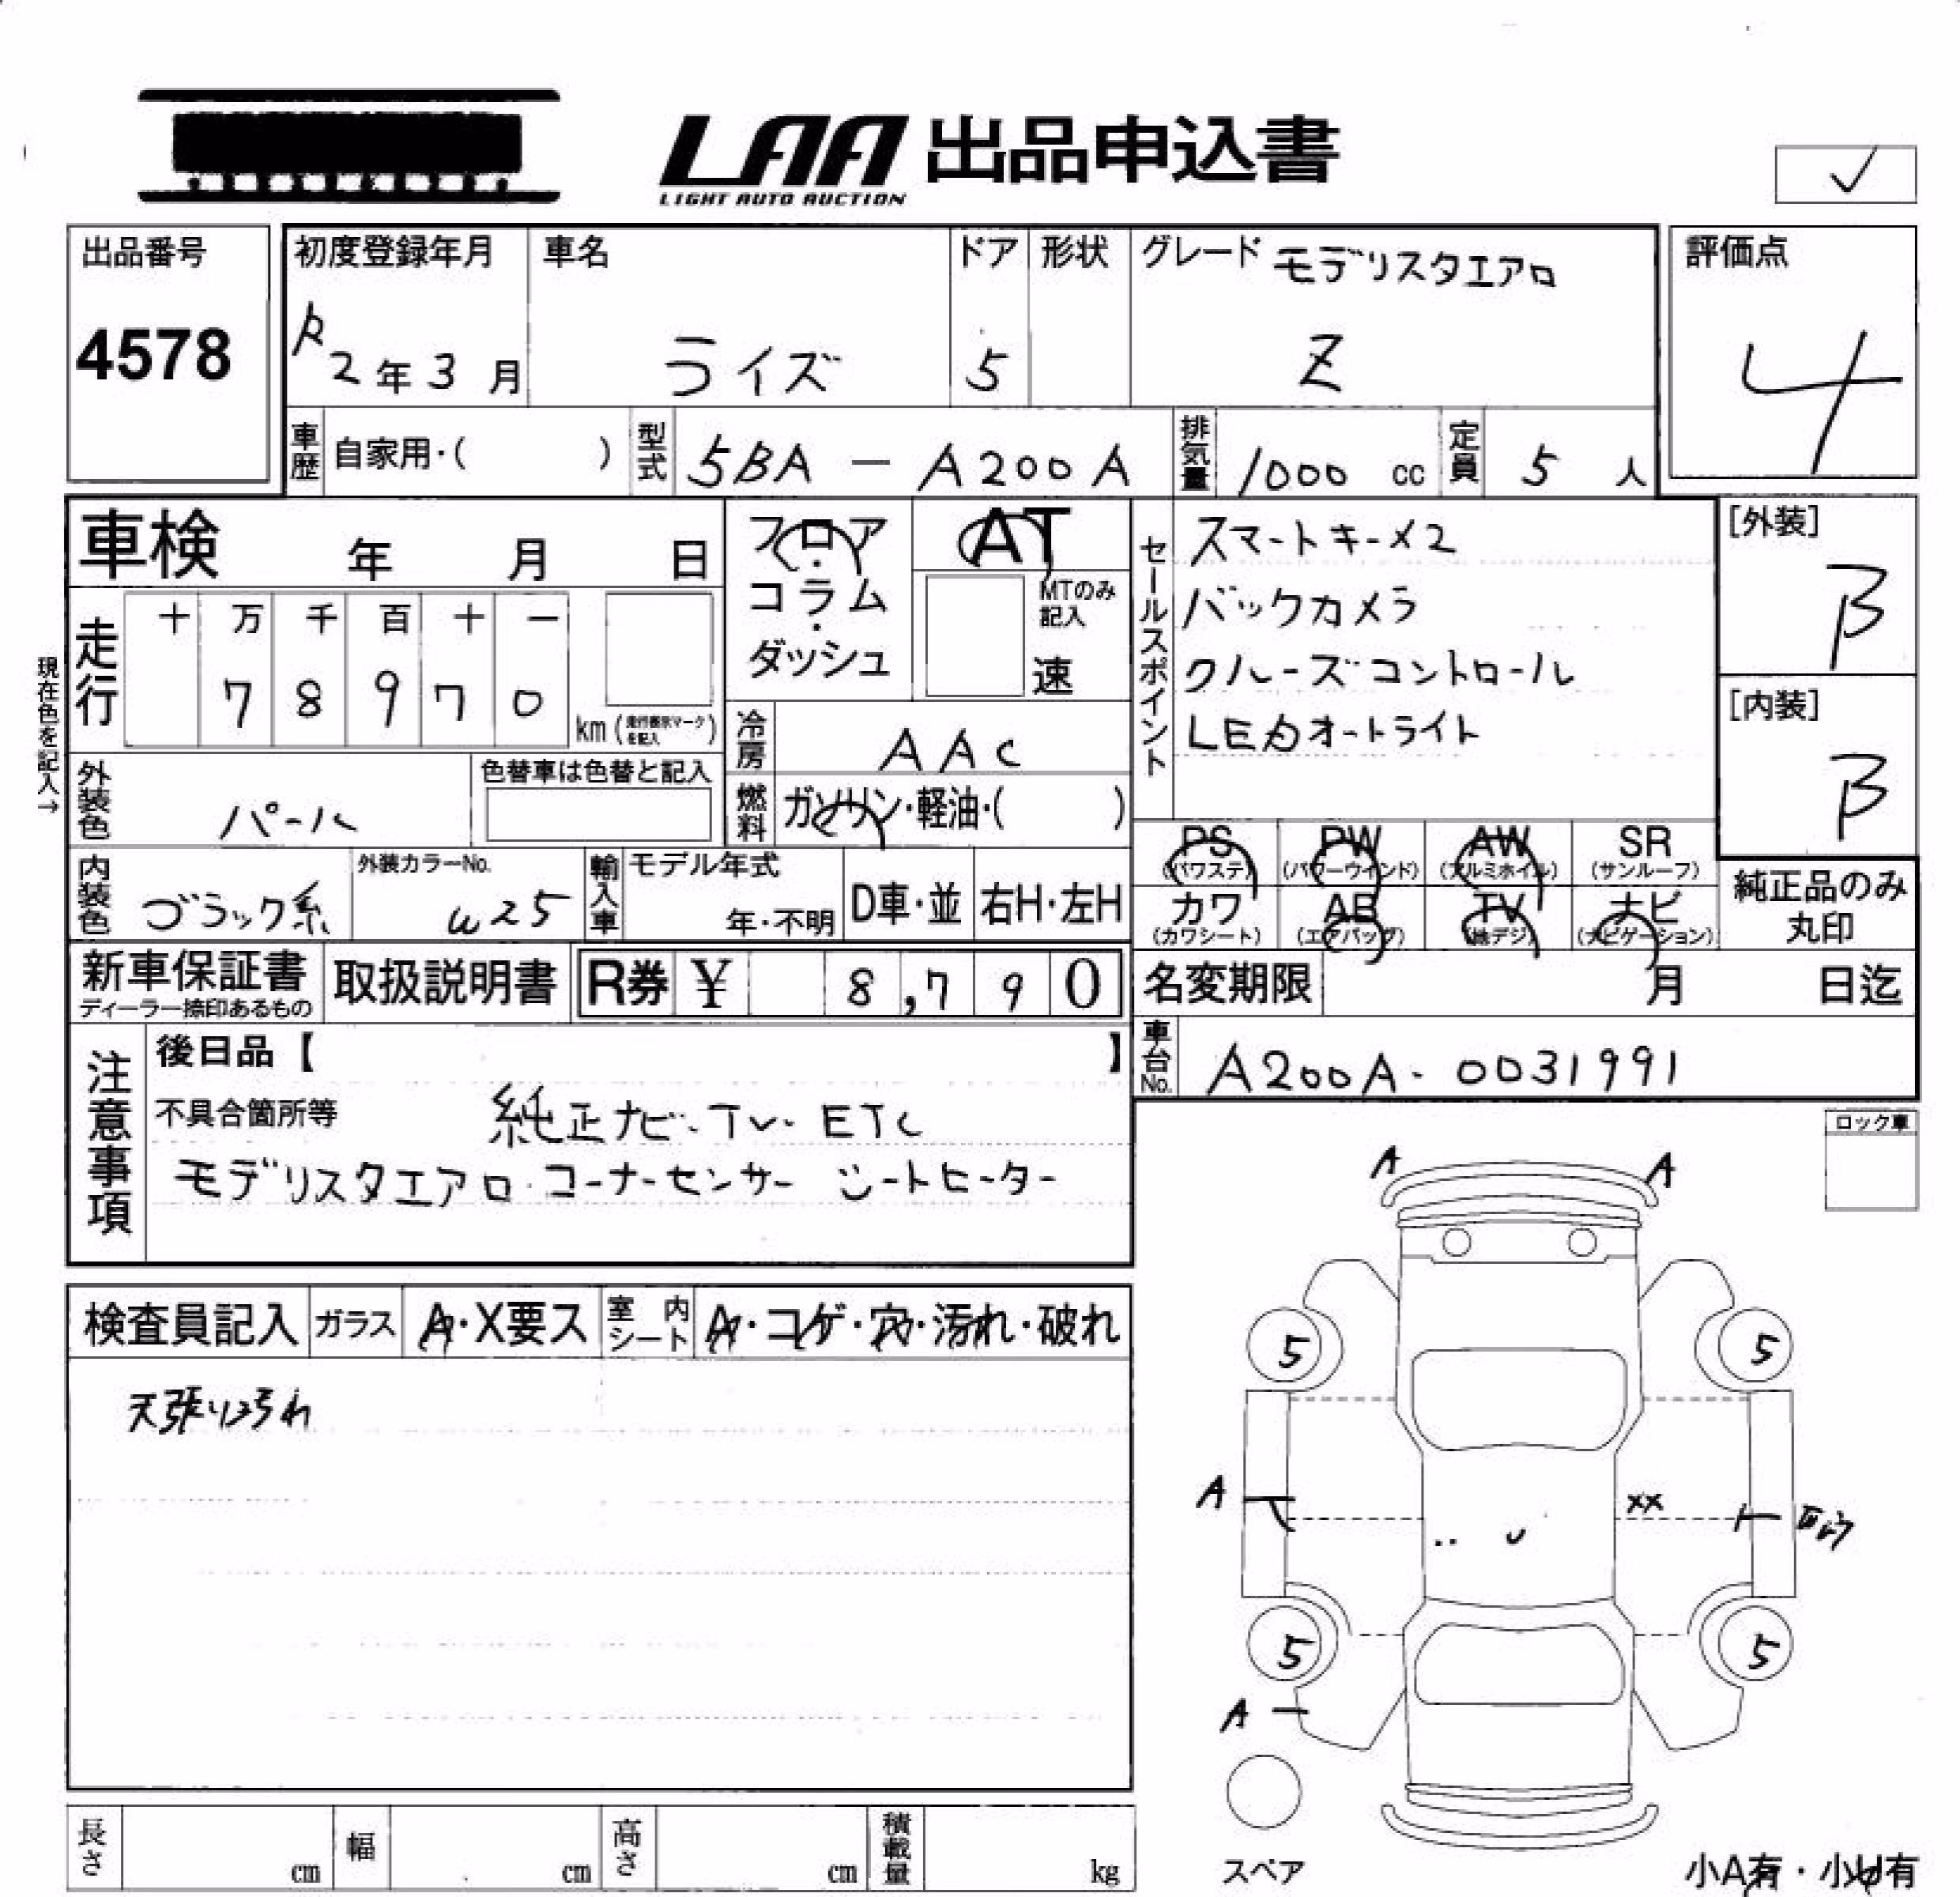 LAA 出品申込書
LIGHT AUTO AUCTION
✓
出品番号
4578
初度登録年月
R2年3月
車名
ライズ
ドア
5
形状
グレード モデリスタエアロ
Z
評価点
4
車歴 自家用・( )
型式 5BA - A200A
排気量 1000 cc
定員 5 人
車検 年 月 日
フロア・コラム・ダッシュ
AT
MTのみ記入
速
セールスポイント
スマートキー×2
バックカメラ
クルーズコントロール
LEDオートライト
[外装]
B
[内装]
B
現在色を記入→
走行
十 万 千 百 十 一
7 8 9 7 0
km (走行表示マークを記入)
冷房 AAC
燃料 ガソリン・軽油・( )
外装色 パール
色替車は色替と記入
内装色 ブラック系
外装カラーNo.
W25
輸入車
モデル年式
年・不明
D車・並
右H・左H
PS (パワステ)
PW (パワーウインド)
AW (アルミホイル)
SR (サンルーフ)
カワ (カワシート)
AB (エアバッグ)
TV (地デジ)
ナビ (ナビゲーション)
純正品のみ丸印
新車保証書
ディーラー捺印あるもの
取扱説明書
R券 ¥ 8,790
名変期限 月 日迄
車台No. A200A-0031991
注意事項
後日品【 】
不具合箇所等 純正ナビ・TV・ETC
モデリスタエアロ・コーナーセンサー シートヒーター
ロック車
検査員記入
ガラス A・X要ス
室内シート A・コゲ・穴・汚れ・破れ
天張り汚れ
A A
5 5
A XX
5 5
A
スペア
小A有・小U有
長さ cm
幅 cm
高さ cm
積載量 kg